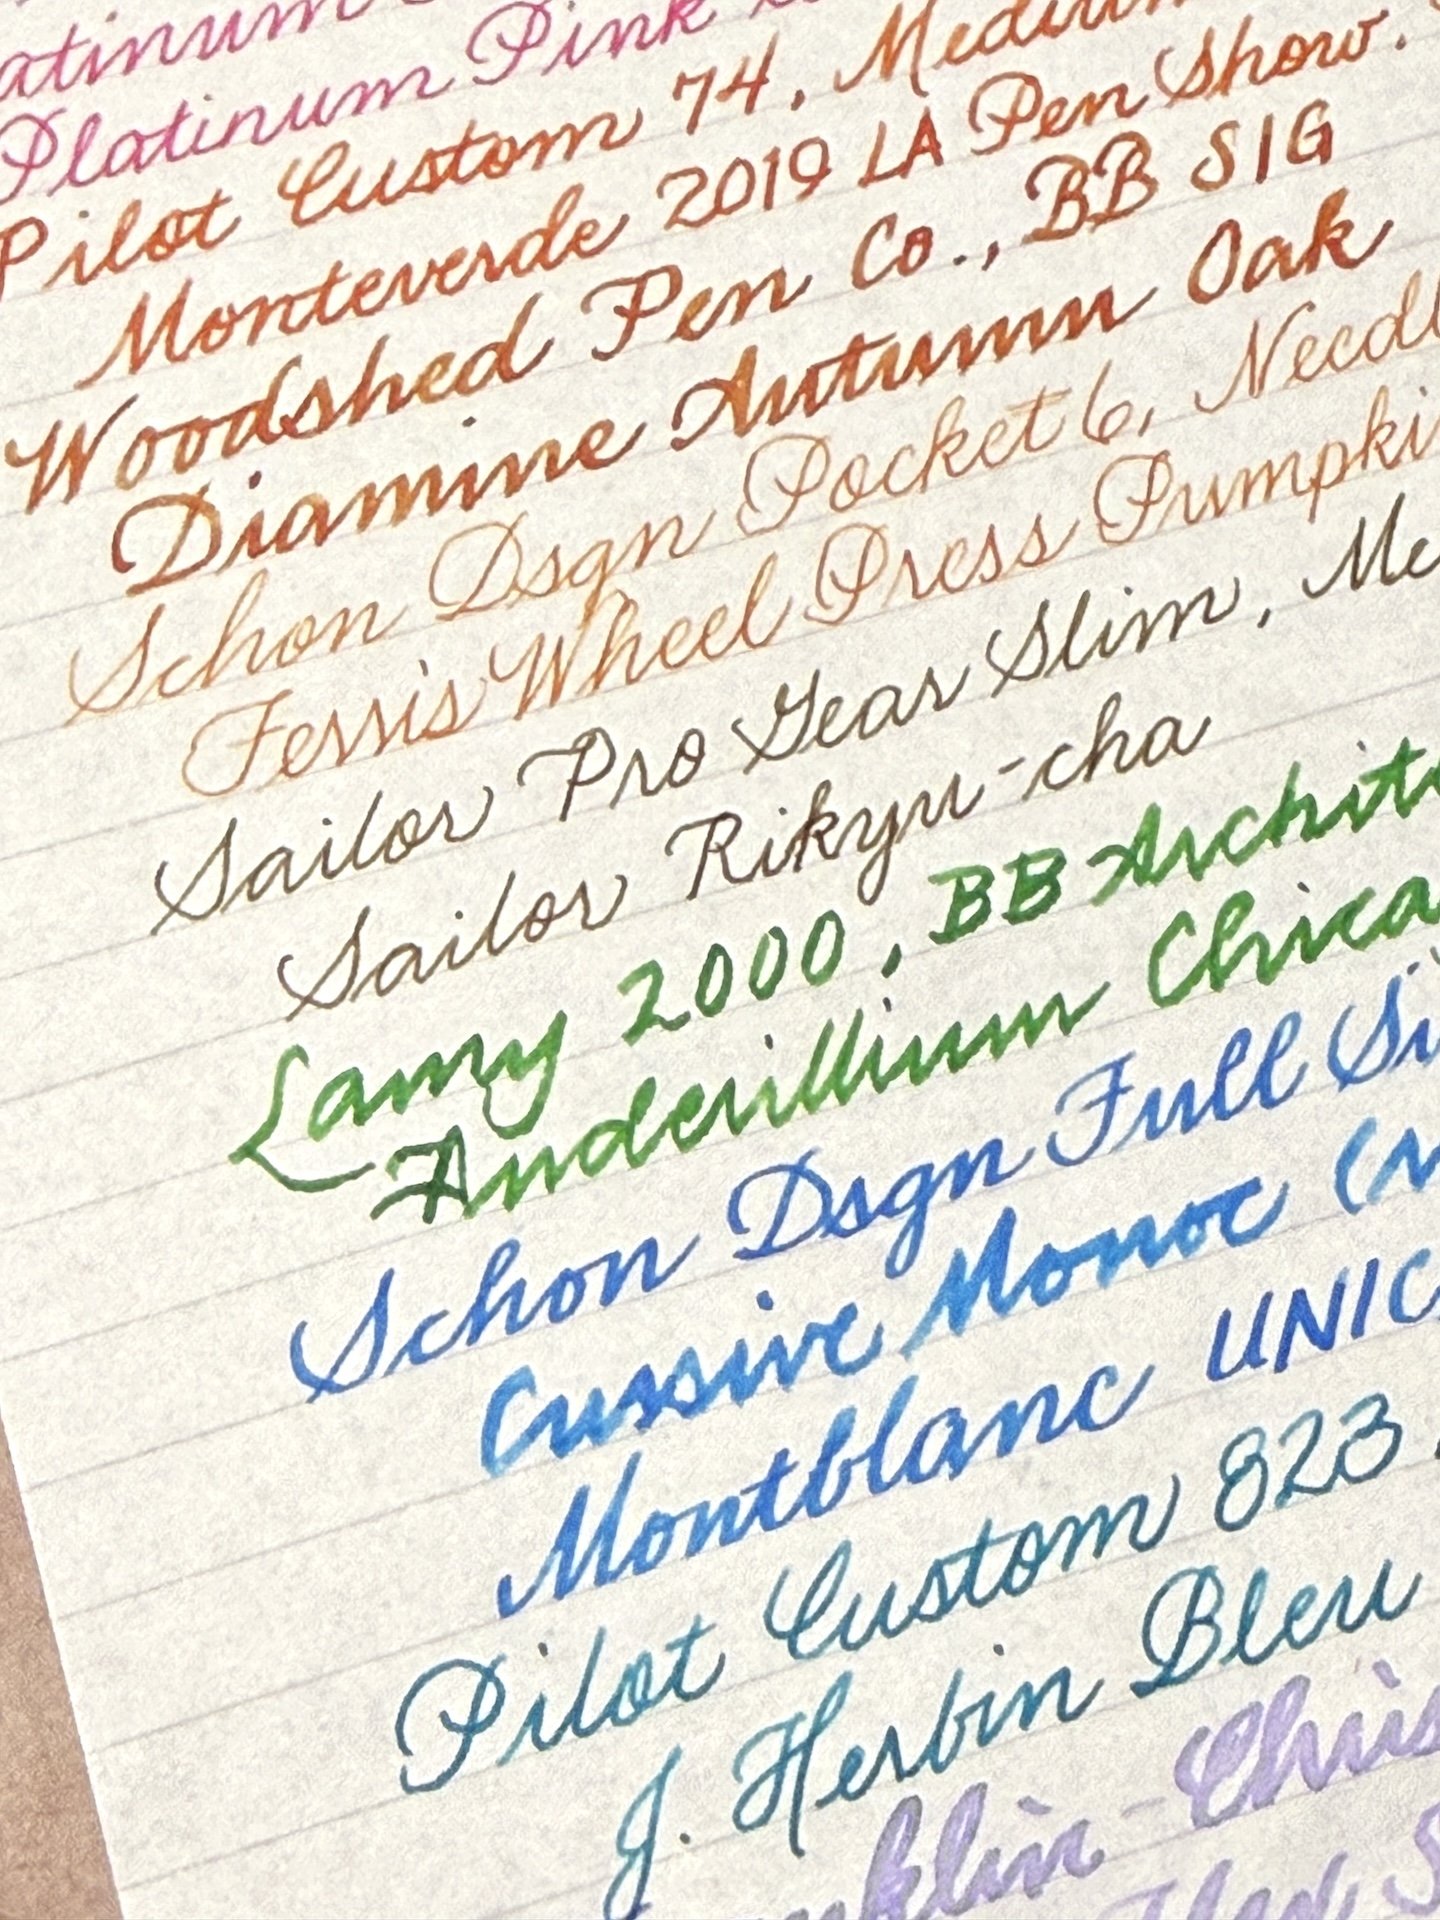 Platinum
Platinum Pink
Pilot Custom 74, Medium
Monteverde 2019 LA Pen Show.
Woodshed Pen Co., BB SIG
Diamine Autumn Oak
Schon Dsgn Pocket 6, Needl
Ferris Wheel Press Pumpki
Sailor Pro Gear Slim, Me
Sailor Rikyu-cha
Lamy 2000, BB Archite
Anderillium Chica
Schon Dsgn Full Si
Cursive Monoc (M
Montblanc UNIC
Pilot Custom 823
J. Herbin Bleu
nklin-Chris